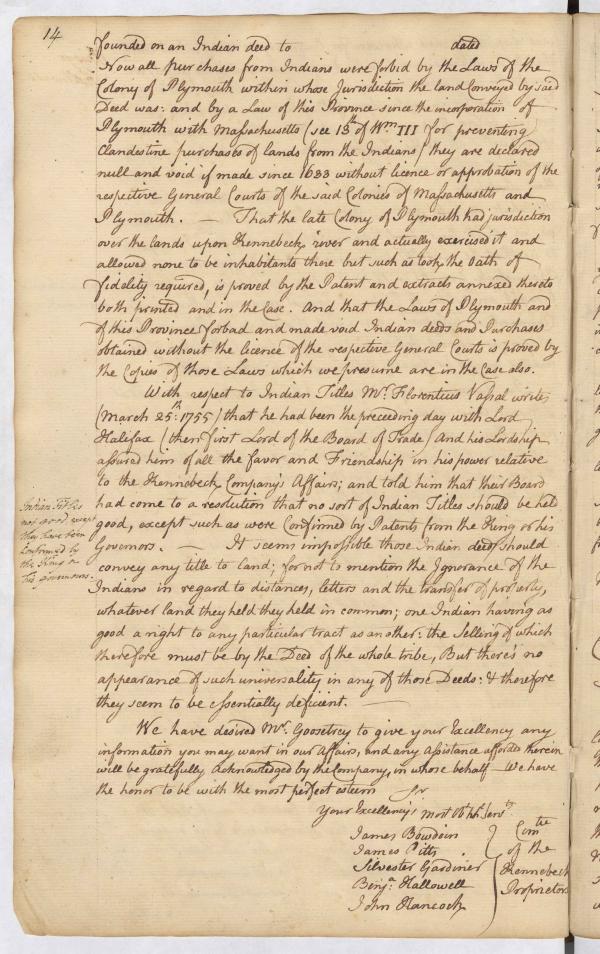 14
founded on an Indian deed to dated
Now all purchases from Indians were forbid by the Laws of the
Colony of Plymouth within whose Jurisdiction the land Conveyed by said
Deed was: and by a Law of this Province since the incorporation of
Plymouth with Massachusetts (see 13th of Wm III for preventing
Clandestine purchases of lands from the Indians) they are declared
null and void if made since 1633 without licence or approbation of the
respective General Courts of the said Colonies of Massachusetts and
Plymouth. — That the late Colony of Plymouth had jurisdiction
over the lands upon Kennebeck river and actually exercised it and
allowed none to be inhabitants there but such as took the Oath of
fidelity required, is proved by the Patent and extracts annexed thereto
both printed and in the Case. And that the Laws of Plymouth and
of this Province forbad and made void Indian deeds and Purchases
obtained without the licence of the respective General Courts is proved by
the Copies of those Laws which we presume are in the Case also.
With respect to Indian Titles Mr. Florentius Vassal writes
(March 25th: 1755) that he had been the preceding day with Lord
Halifax (then first Lord of the Board of Trade) And his Lordship
assured him of all the favor and Friendship in his power relative
to the Kennebeck Company's Affairs; and told him that their Board
had come to a resolution that no sort of Indian Titles should be held
good, except such as were Confirmed by Patents from the King or his
Governors. — It seems impossible those Indian deeds should
convey any title to land; for not to mention the Ignorance of the
Indians in regard to distances, letters and the transfer of property,
whatever land they held they held in common; one Indian having as
good a right to any particular tract as another: the Selling of which
therefore must be by the Deed of the whole tribe, But there's no
appearance of such universality in any of those Deeds: & therefore
they seem to be essentially deficient. —
Indian Titles
not good except
they have been
Confirmed by
the King or
his governors.
We have desired Mr. Goostrey to give your Excellency any
information you may want in our Affairs, and any Assistance afforded therein
will be gratefully acknowledged by the Company, in whose behalf We have
the honor to be with the most perfect esteem Sir
Your Excellency's most Ob. hb. Servts
James Bowdoin
James Pitts
Silvester Gardiner
Benja. Hallowell
John Hancock
Comtee
of the
Kennebeck
Proprietors